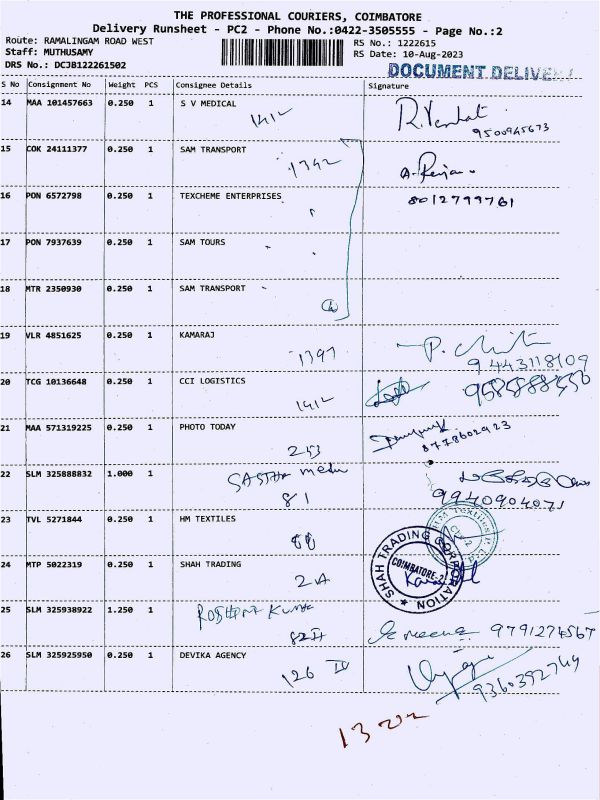 THE PROFESSIONAL COURIERS, COIMBATORE
Delivery Runsheet - PC2 - Phone No.:0422-3505555 - Page No.:2
Route: RAMALINGAM ROAD WEST
Staff: MUTHUSAMY
DRS No.: DCJB122261502
RS No.: 1222615
RS Date: 10-Aug-2023
DOCUMENT DELIVE
S No Consignment No Weight PCS Consignee Details Signature
14 MAA 101457663 0.250 1 S V MEDICAL
1412
R. Venkat
9500945673
15 COK 24111377 0.250 1 SAM TRANSPORT
1342
16 PON 6572798 0.250 1 TEXCHEME ENTERPRISES
8012799761
17 PON 7937639 0.250 1 SAM TOURS
18 MTR 2350930 0.250 1 SAM TRANSPORT
19 VLR 4851625 0.250 1 KAMARAJ
1397
9443118109
20 TCG 10136648 0.250 1 CCI LOGISTICS
1412
21 MAA 571319225 0.250 1 PHOTO TODAY
253
8778602923
22 SLM 325888832 1.000 1
81
9940904071
23 TVL 5271844 0.250 1 HM TEXTILES
24 MTP 5022319 0.250 1 SHAH TRADING
2A
SHAH TRADING CORPORATION
COIMBATORE-2
25 SLM 325938922 1.250 1
82II
9791274567
26 SLM 325925950 0.250 1 DEVIKA AGENCY
126 IV
9360392749